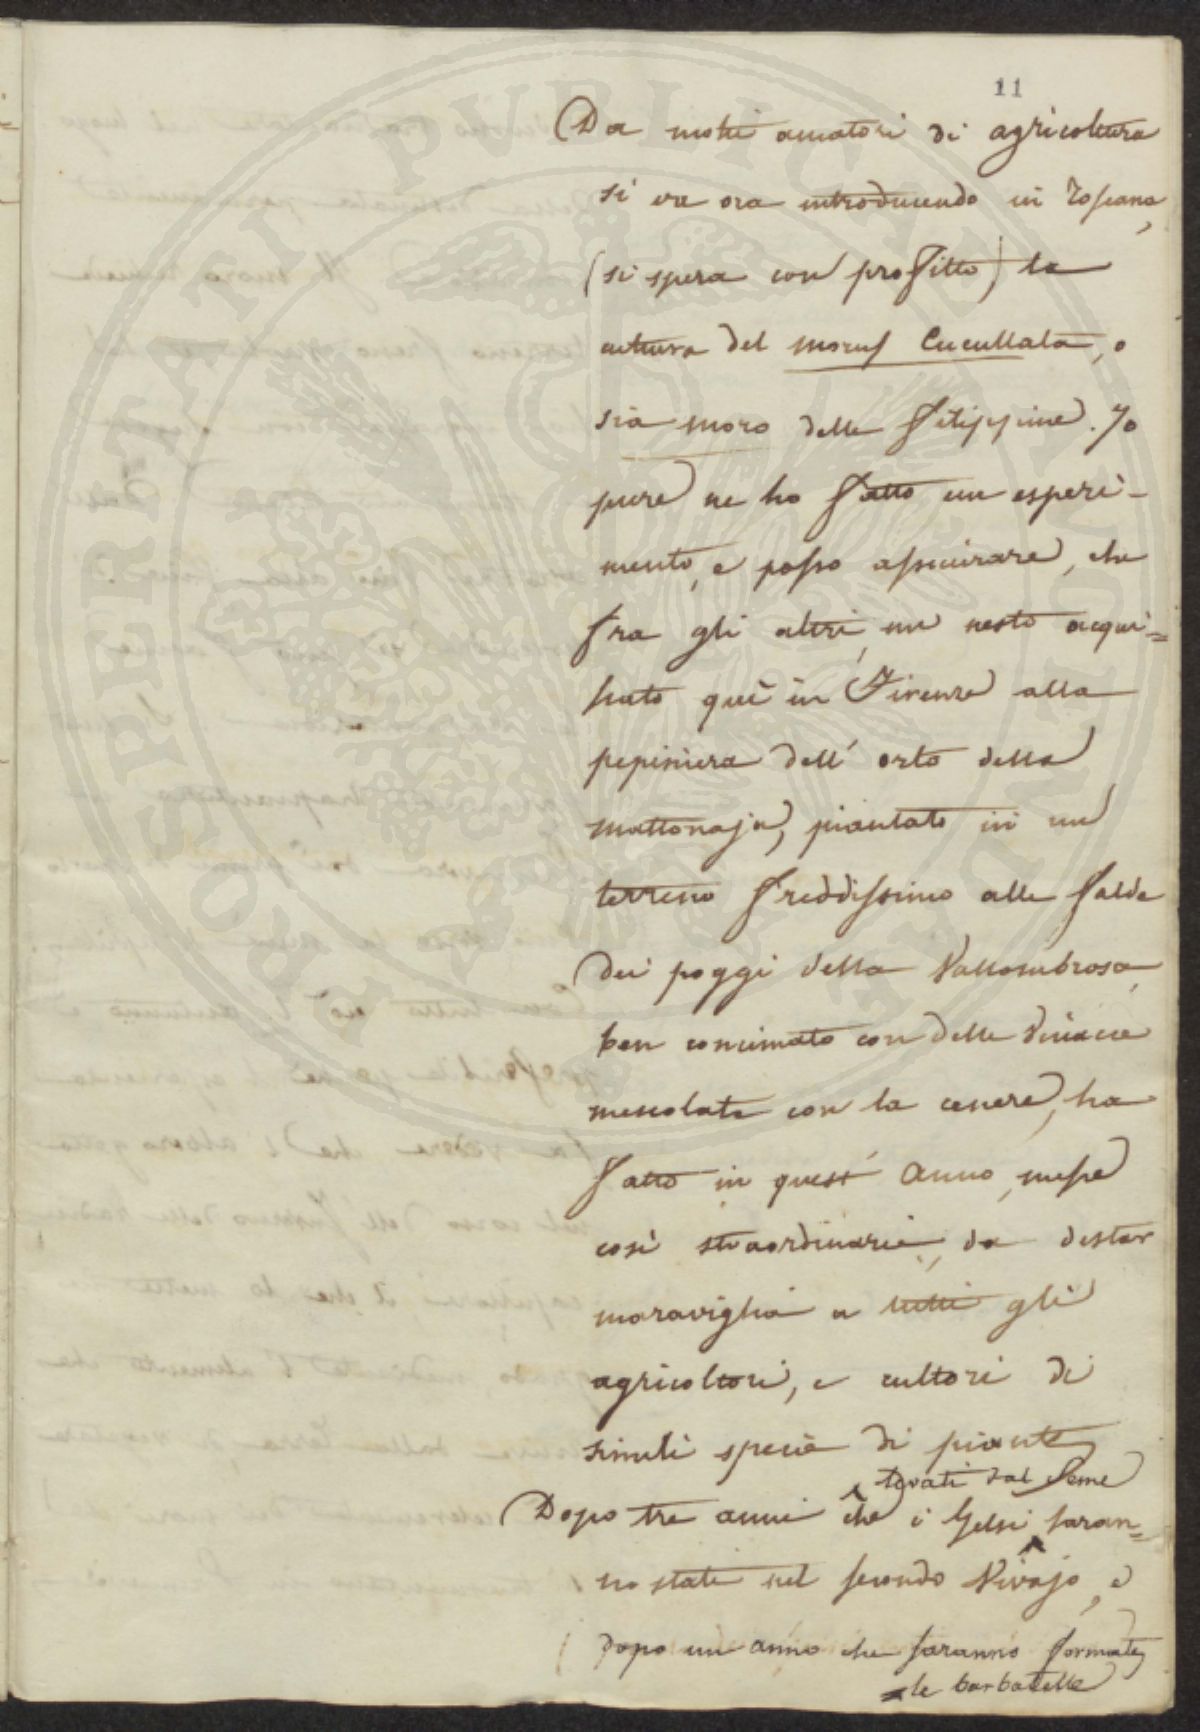 11
Da molti amatori di agricoltura
si va ora introducendo in Toscana,
(si spera con profitto) la
cultura del morus Cucullata, o
sia moro delle Filippine. Jo
pure ne ho fatto un esperi-
mento, e posso assicurare, che
fra gli altri, un nesto acqui=
stato quì in Firenze alla
pepiniera dell' orto della
mattonaja, piantato in un
terreno freddissimo alle falde
dei poggi della Vallombrosa,
ben concimato con delle vinacce
mescolate con la cenere, ha
fatto in quest' anno, messe
così straordinarie, da destar
maraviglia a tutti gli
agricoltori, e cultori di
simili specie di piante
levati dal Seme
Dopo tre anni che i Gelsi saran=
no stati nel secondo Vivajo, e
dopo un anno che saranno formate
le barbatelle
PROSPERITATI PVBLICAE AVGENDAE